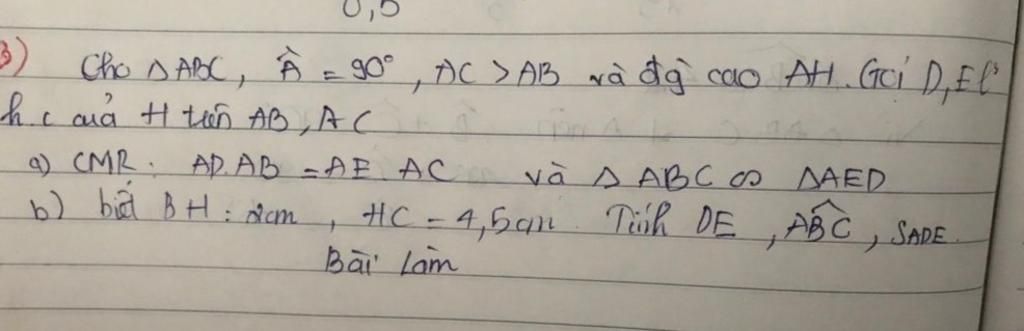 0,5
3) Cho △ABC, Â = 90°, AC > AB và đg cao AH. Gọi D, E l
h.c của H trên AB, AC
a) CMR: AD.AB = AE.AC và △ABC ∽ △AED
b) biết BH: 2cm, HC = 4,5cm. Tính DE, ABC, SADE.
Bài làm